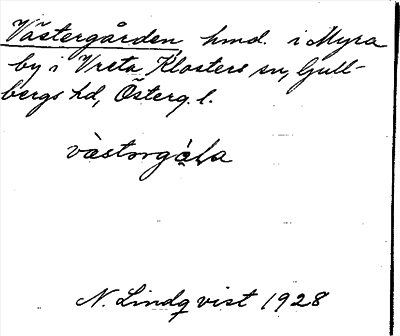 Västergården hmd. i Myra
by i Vreta Klosters sn, Gull-
bergs hd, Österg. l.
N. Lindqvist 1928